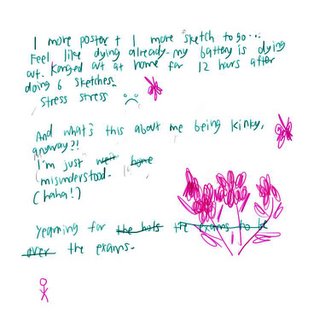 1 more poster + 1 more sketch to go...
Feel like dying already. my battery is dying
out. Konged out at home for 12 hours after
doing 6 sketches.
Stress stress
And what's this about me being kinky,
anyway?!
I'm just
misunderstood.
(haha!)
Yearning for the exams to be
over the exams.